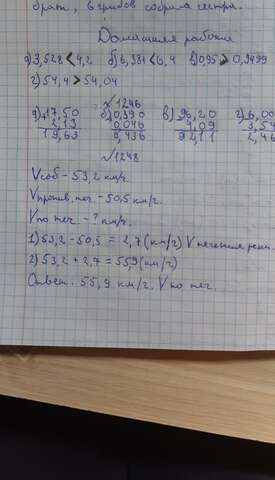 брат, в грибов собрала сестра.
Домашняя работа
а) 3,528 < 4,2 б) 6,381 < 6,4 в) 0,95 > 0,9499
г) 54,4 > 54,04
√1246
а) +17,50 б) 0,390 в) 96,20 г) 6,00
2,13 0,046 4,09 3,54
19,63 0,436 92,11 2,46
√1248
Vсоб - 53,2 км/ч.
Vпротив. теч. - 50,5 км/ч.
Vпо теч. - ? км/ч.
1) 53,2 - 50,5 = 2,7 (км/ч) V течения реки.
2) 53,2 + 2,7 = 55,9 (км/ч)
Ответ: 55,9 км/ч. V по теч.